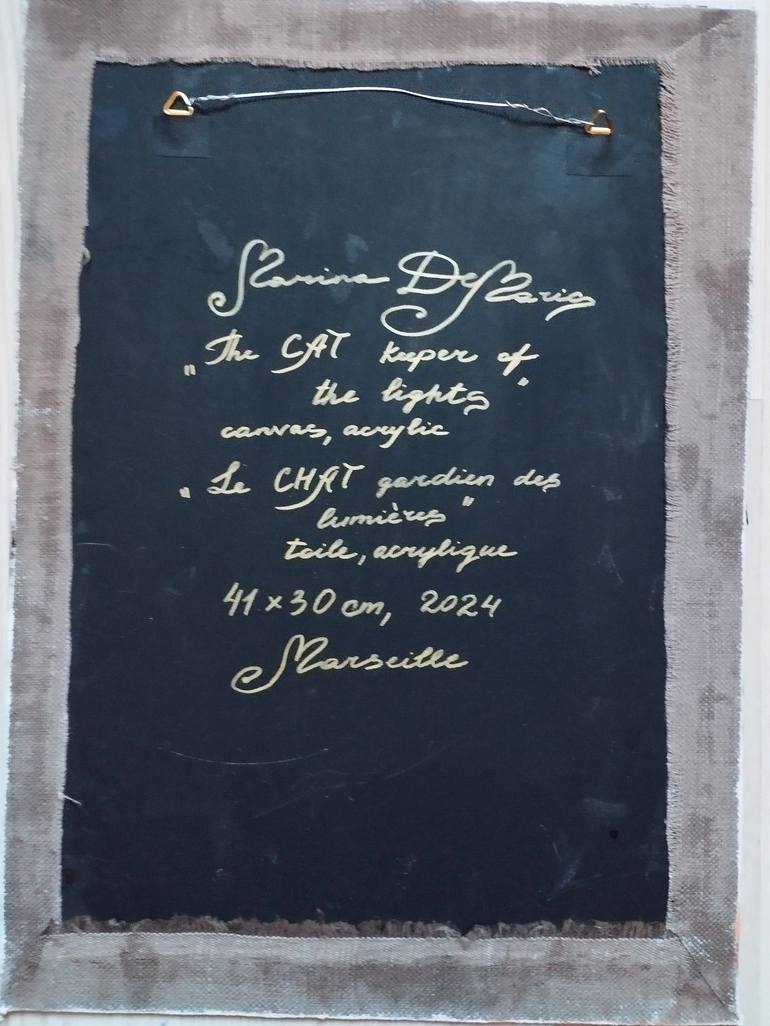 Marina De Maria
„The CAT keeper of
the lights"
canvas, acrylic
„Le CHAT gardien des
lumières"
toile, acrylique
41 x 30 cm, 2024
Marseille